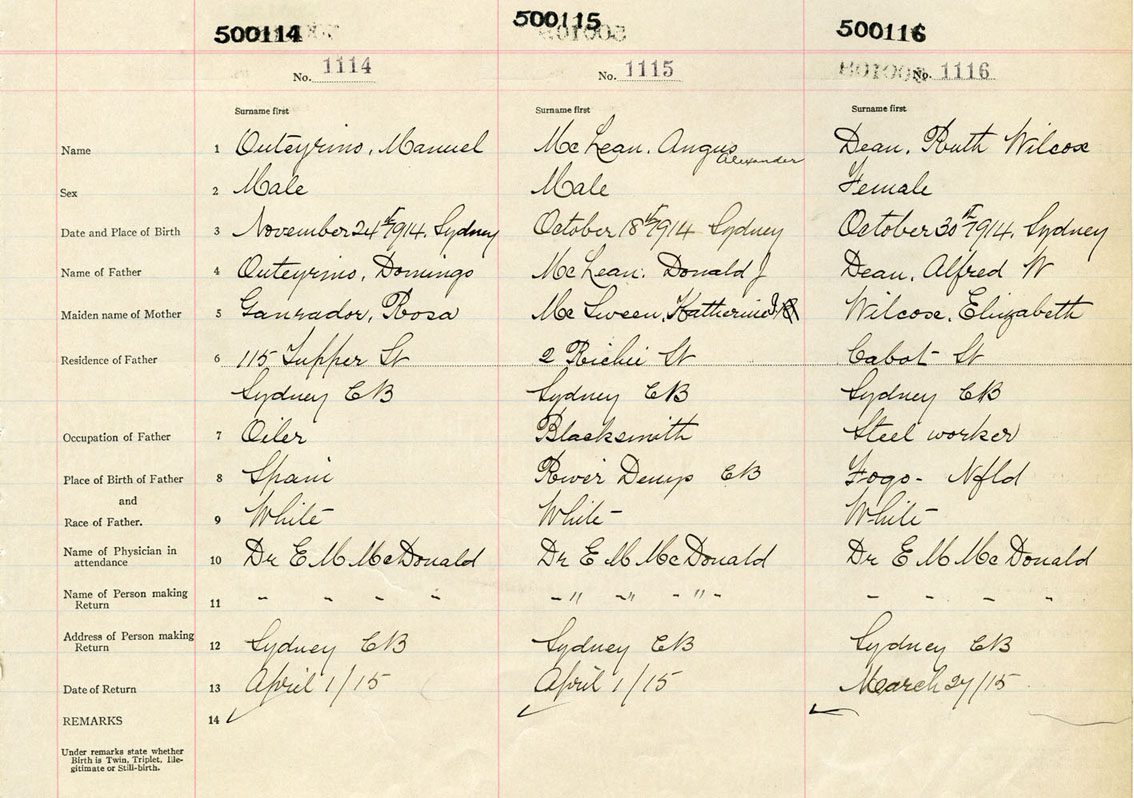 500114 500115 500116
No. 1114 No. 1115 No. 1116
Surname first Surname first Surname first
Name 1 Outeyrino, Manuel McLean, Angus Alexander Dean, Ruth Wilcox
Sex 2 Male Male Female
Date and Place of Birth 3 November 24th 1914, Sydney October 18th 1914 Sydney October 30th 1914, Sydney
Name of Father 4 Outeyrino, Domingo McLean, Donald J Dean, Alfred W
Maiden name of Mother 5 Rosa Mc Sween, Katherine J. Wilcox, Elizabeth
Residence of Father 6 115 Tupper St 2 Richie St Cabot St
Sydney CB Sydney CB Sydney CB
Occupation of Father 7 Oiler Blacksmith Steel worker
Place of Birth of Father 8 Spain River Denys CB Fogo - Nfld
and
Race of Father. 9 White White White
Name of Physician in attendance 10 Dr E M McDonald Dr E M McDonald Dr E M McDonald
Name of Person making Return 11 " " " " " " " " " " "
Address of Person making Return 12 Sydney CB Sydney CB Sydney CB
Date of Return 13 April 1/15 April 1/15 March 27/15
REMARKS 14
Under remarks state whether
Birth is Twin, Triplet, Ille-
gitimate or Still-birth.